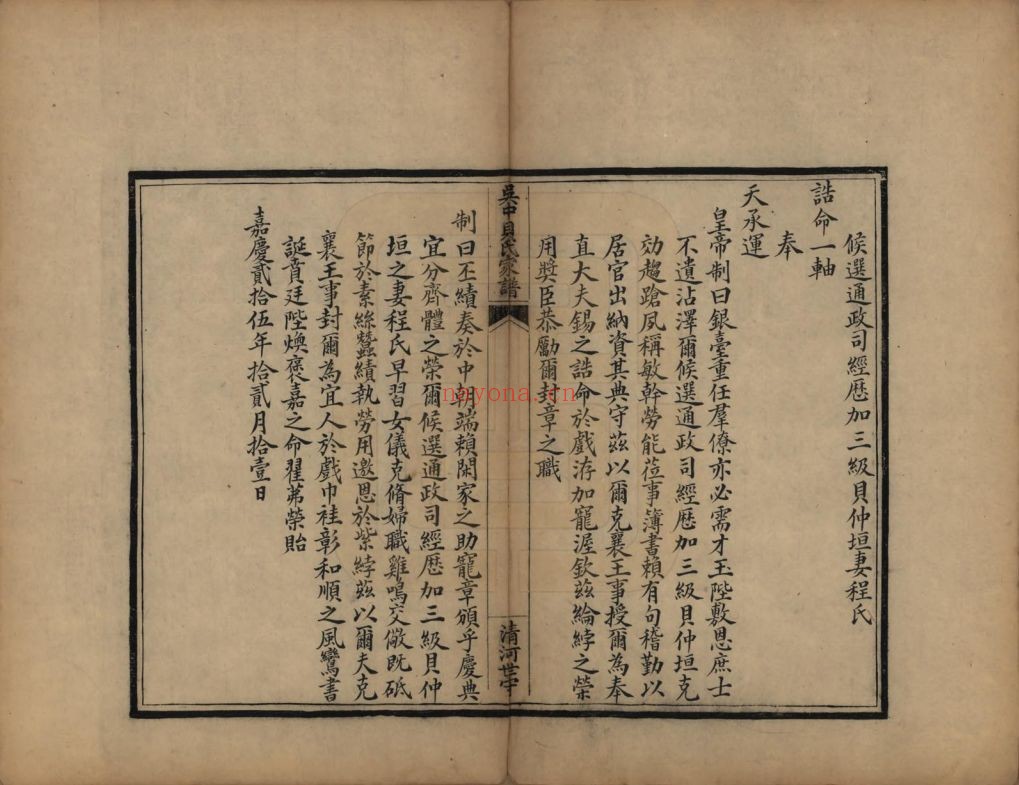 候選通政司經歷加三級貝仲垣妻程氏
誥命一軸
奉
天承運
皇帝制曰銀臺重任羣僚亦必需才玉陛敷恩庶士
不遺沾澤爾候選通政司經歷加三級貝仲垣克
効趨蹌夙稱敏幹勞能莅事簿書賴有句稽勤以
居官出納資其典守茲以爾克襄王事授爾為奉
直大夫錫之誥命於戲洊加寵渥欽茲綸綍之榮
用獎臣恭勵爾封章之職
吳中貝氏家譜
清河世宇
制曰丕績奏於中朝端賴閑家之助寵章頒乎慶典
宜分齊體之榮爾候選通政司經歷加三級貝仲
垣之妻程氏早習女儀克脩婦職雞鳴交儆既砥
節於素絲蠶績執勞用邀恩於紫綍茲以爾夫克
襄王事封爾為宜人於戲巾袿彰和順之風鸞書
誕賁廷陛煥褒嘉之命翟茀榮貽
嘉慶貳拾伍年拾貳月拾壹日
nayona.cn